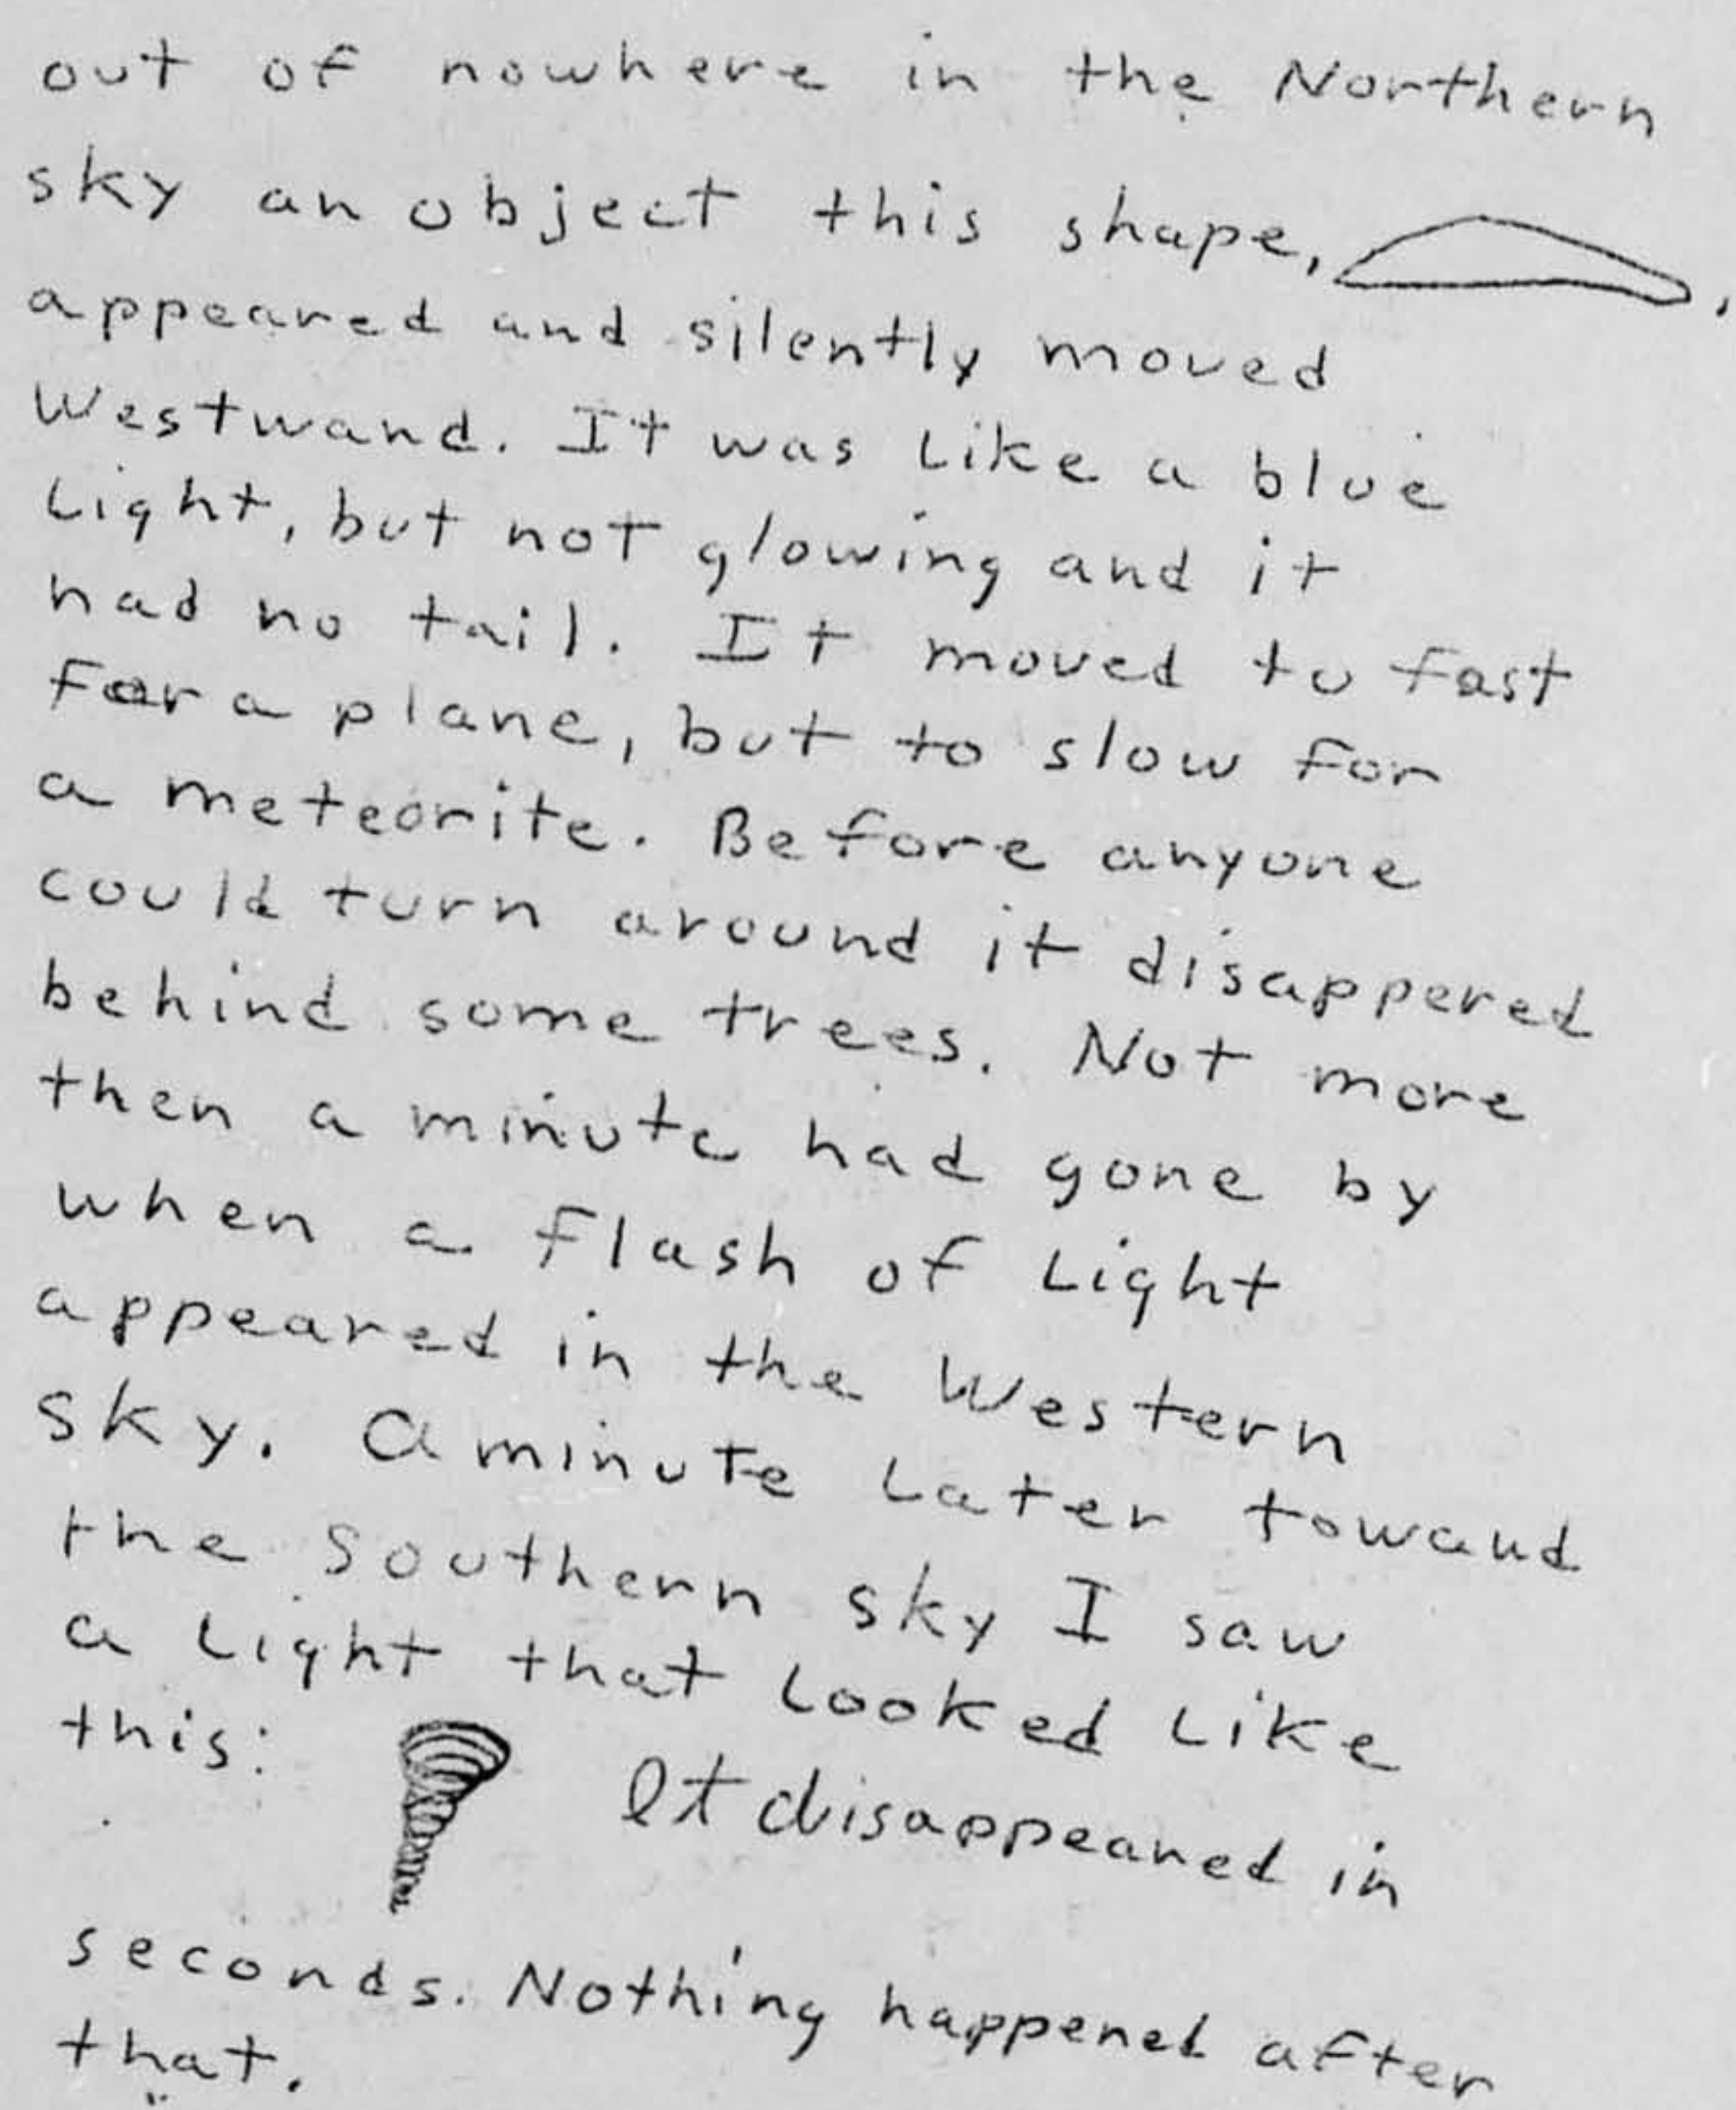 out of nowhere in the Northern
sky an object this shape, ,
appeared and silently moved
Westward. It was like a blue
Light, but not glowing and it
had no tail. It moved to fast
for a plane, but to slow for
a meteorite. Before anyone
could turn around it disappered
behind some trees. Not more
then a minute had gone by
when a flash of Light
appeared in the Western
sky. A minute Later toward
the Southern sky I saw
a Light that Looked Like
this: It disappeared in
seconds. Nothing happened after
that.